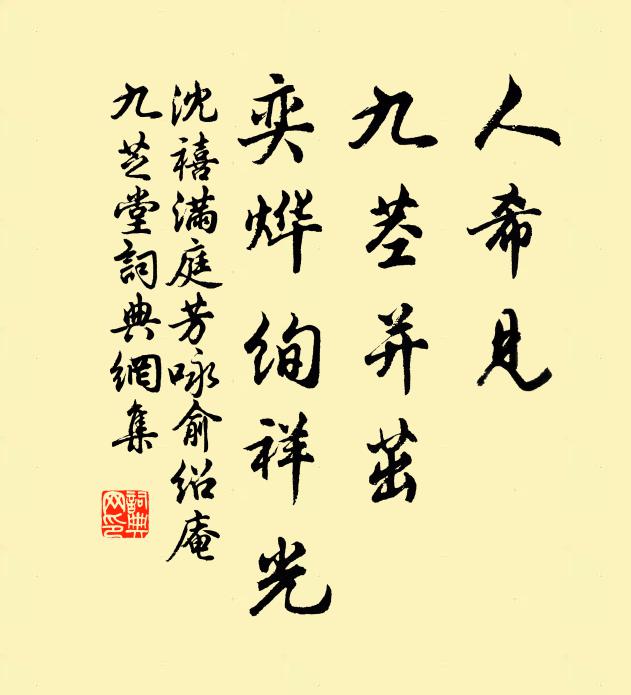 人希见
九茎并茁
奕烨绚祥光
沈禧满庭芳咏俞绍庵
九芝堂詞典網集
詞典网印